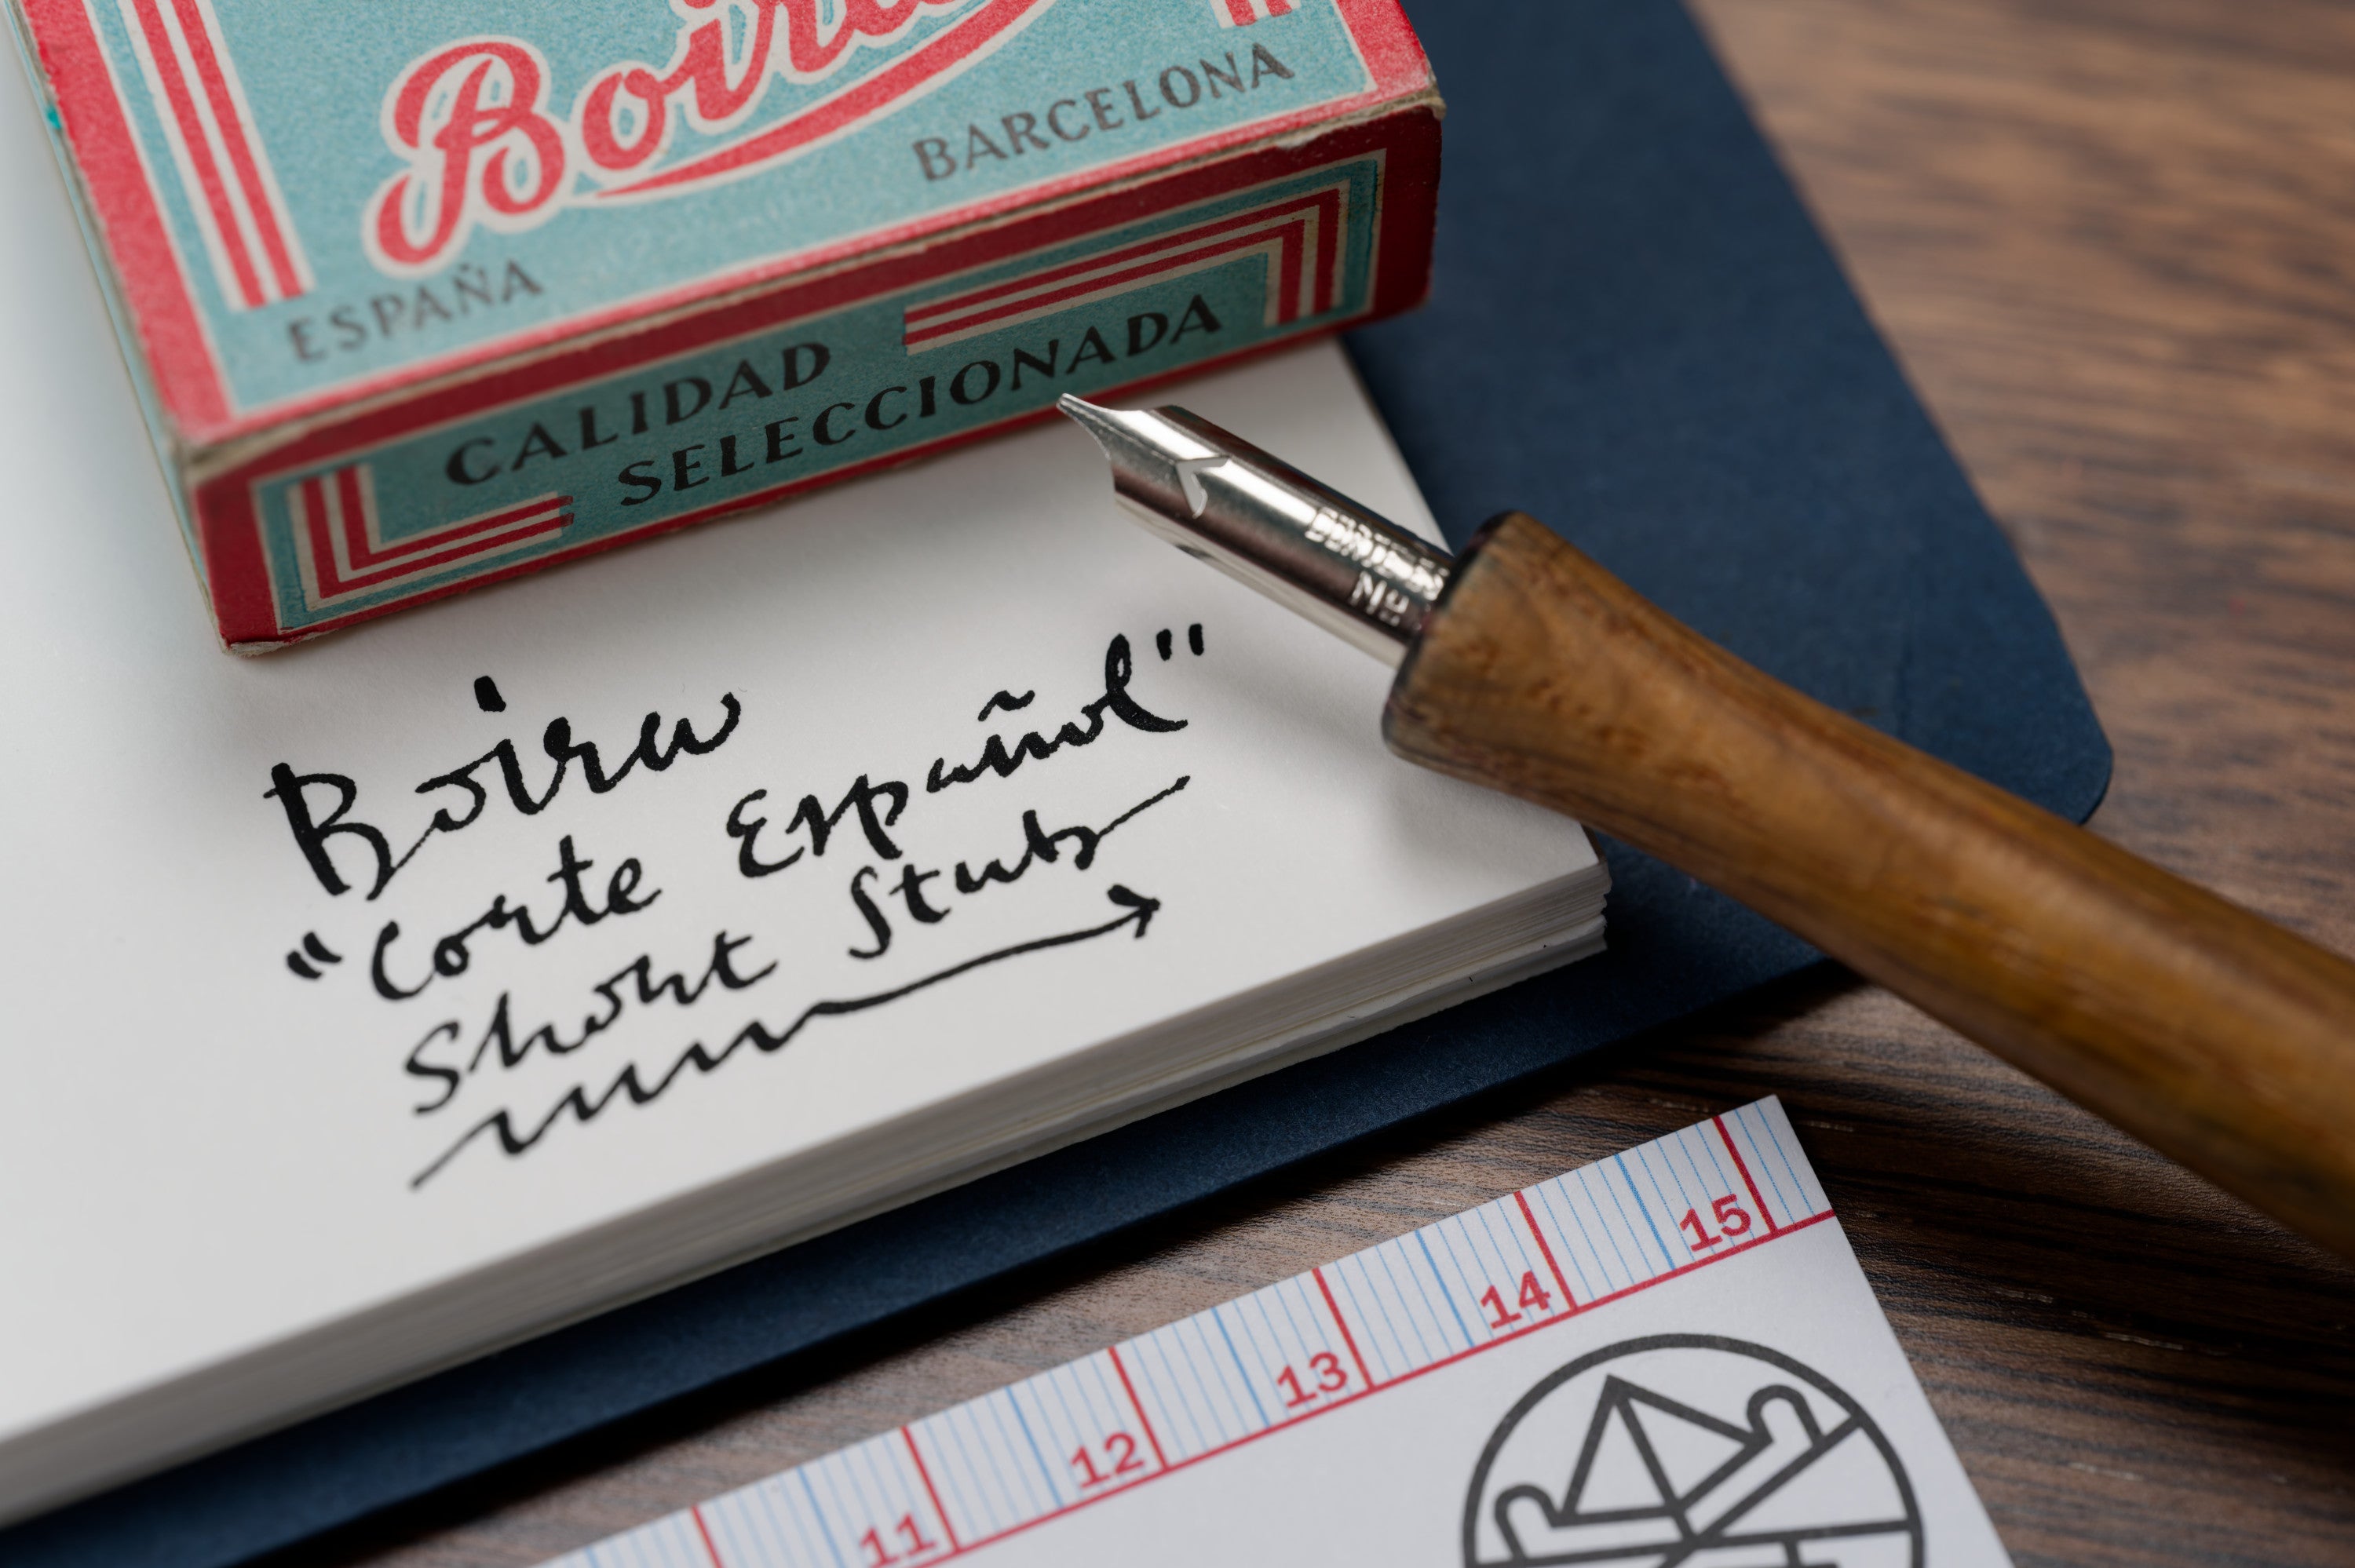 BARCELONA
ESPAÑA
CALIDAD
SELECCIONADA
Nº
Boira
"Corte Español"
Short Stub
11 12 13 14 15